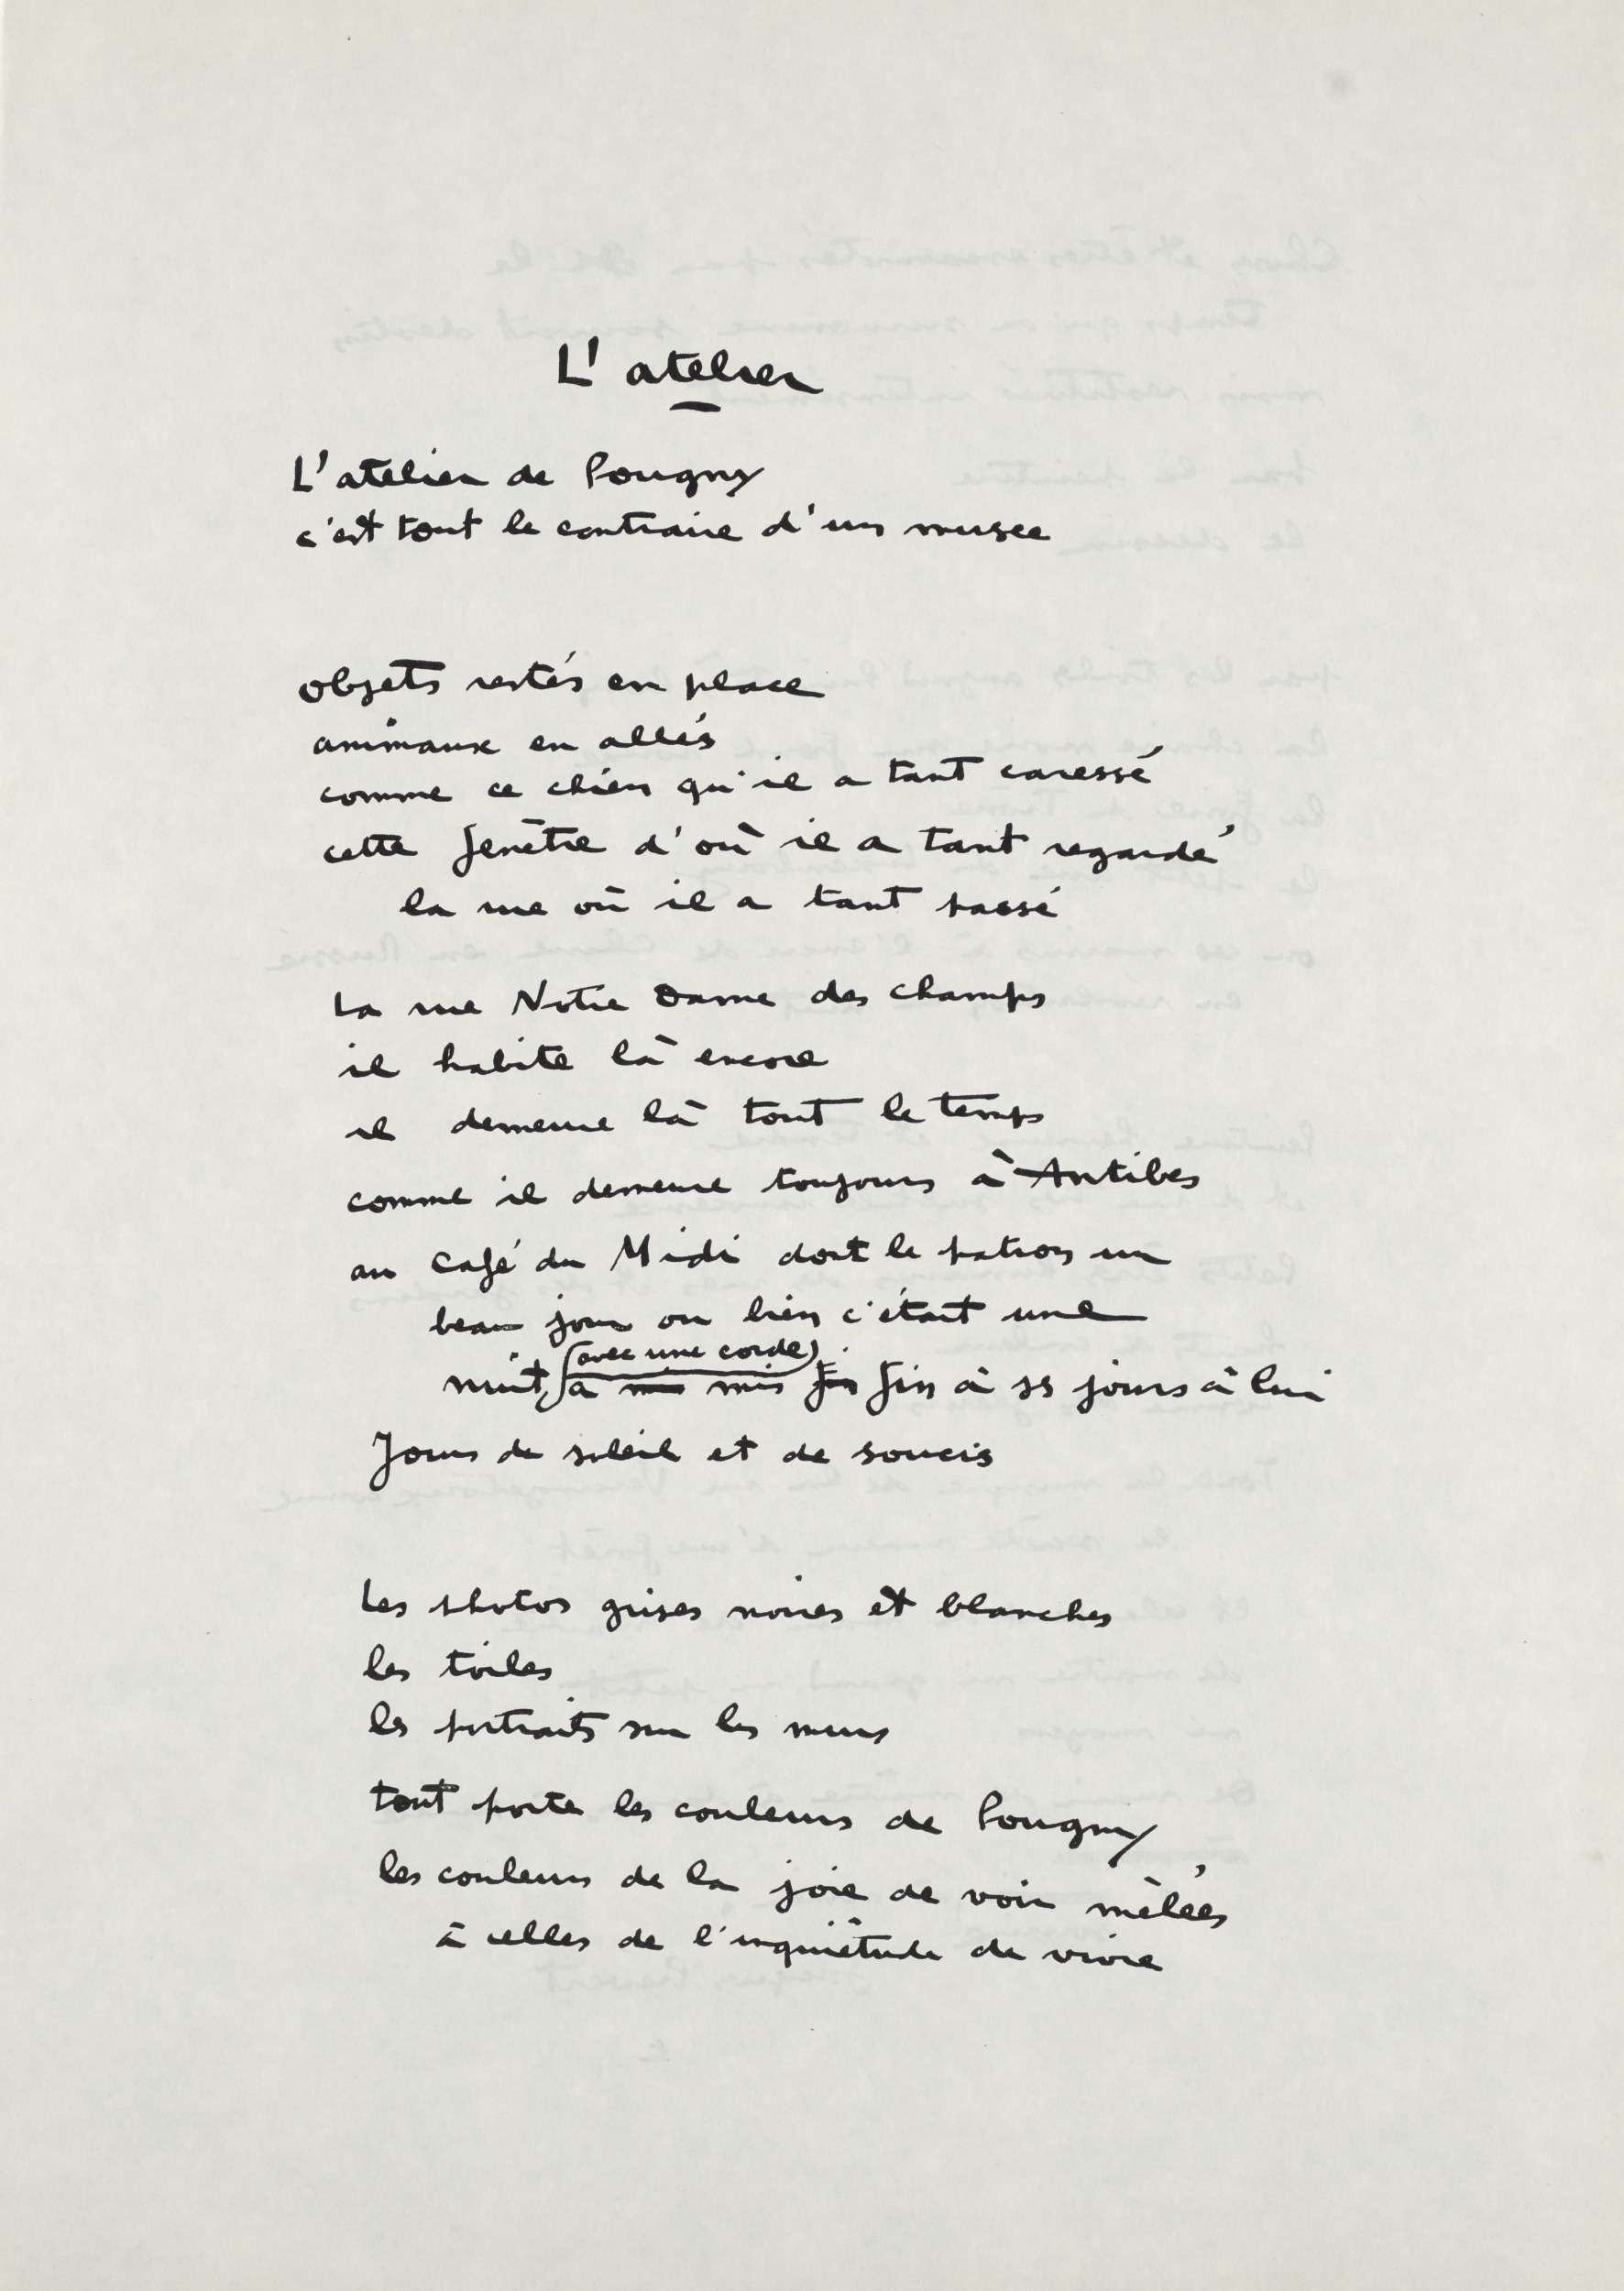 L'atelier
L'atelier de Pougny
c'est tout le contraire d'un musee
objets restés en place
animaux en allés
comme ce chien qu'il a tant caressé
cette fenêtre d'où il a tant regardé
la rue où il a tant passé
La rue Notre Dame des champs
il habite là encore
il demeure là tout le temps
comme il demeure toujours à Antibes
au Café du Midi dont le patron un
beau jour ou bien c'était une
(avec une corde)
nuit, a mis fin à ses jours à lui
Jours de soleil et de soucis
Les photos grises noires et blanches
les toiles
les portraits sur les murs
tout porte les couleurs de Pougny
les couleurs de la joie de voir mêlées
à celles de l'inquiétude de vivre